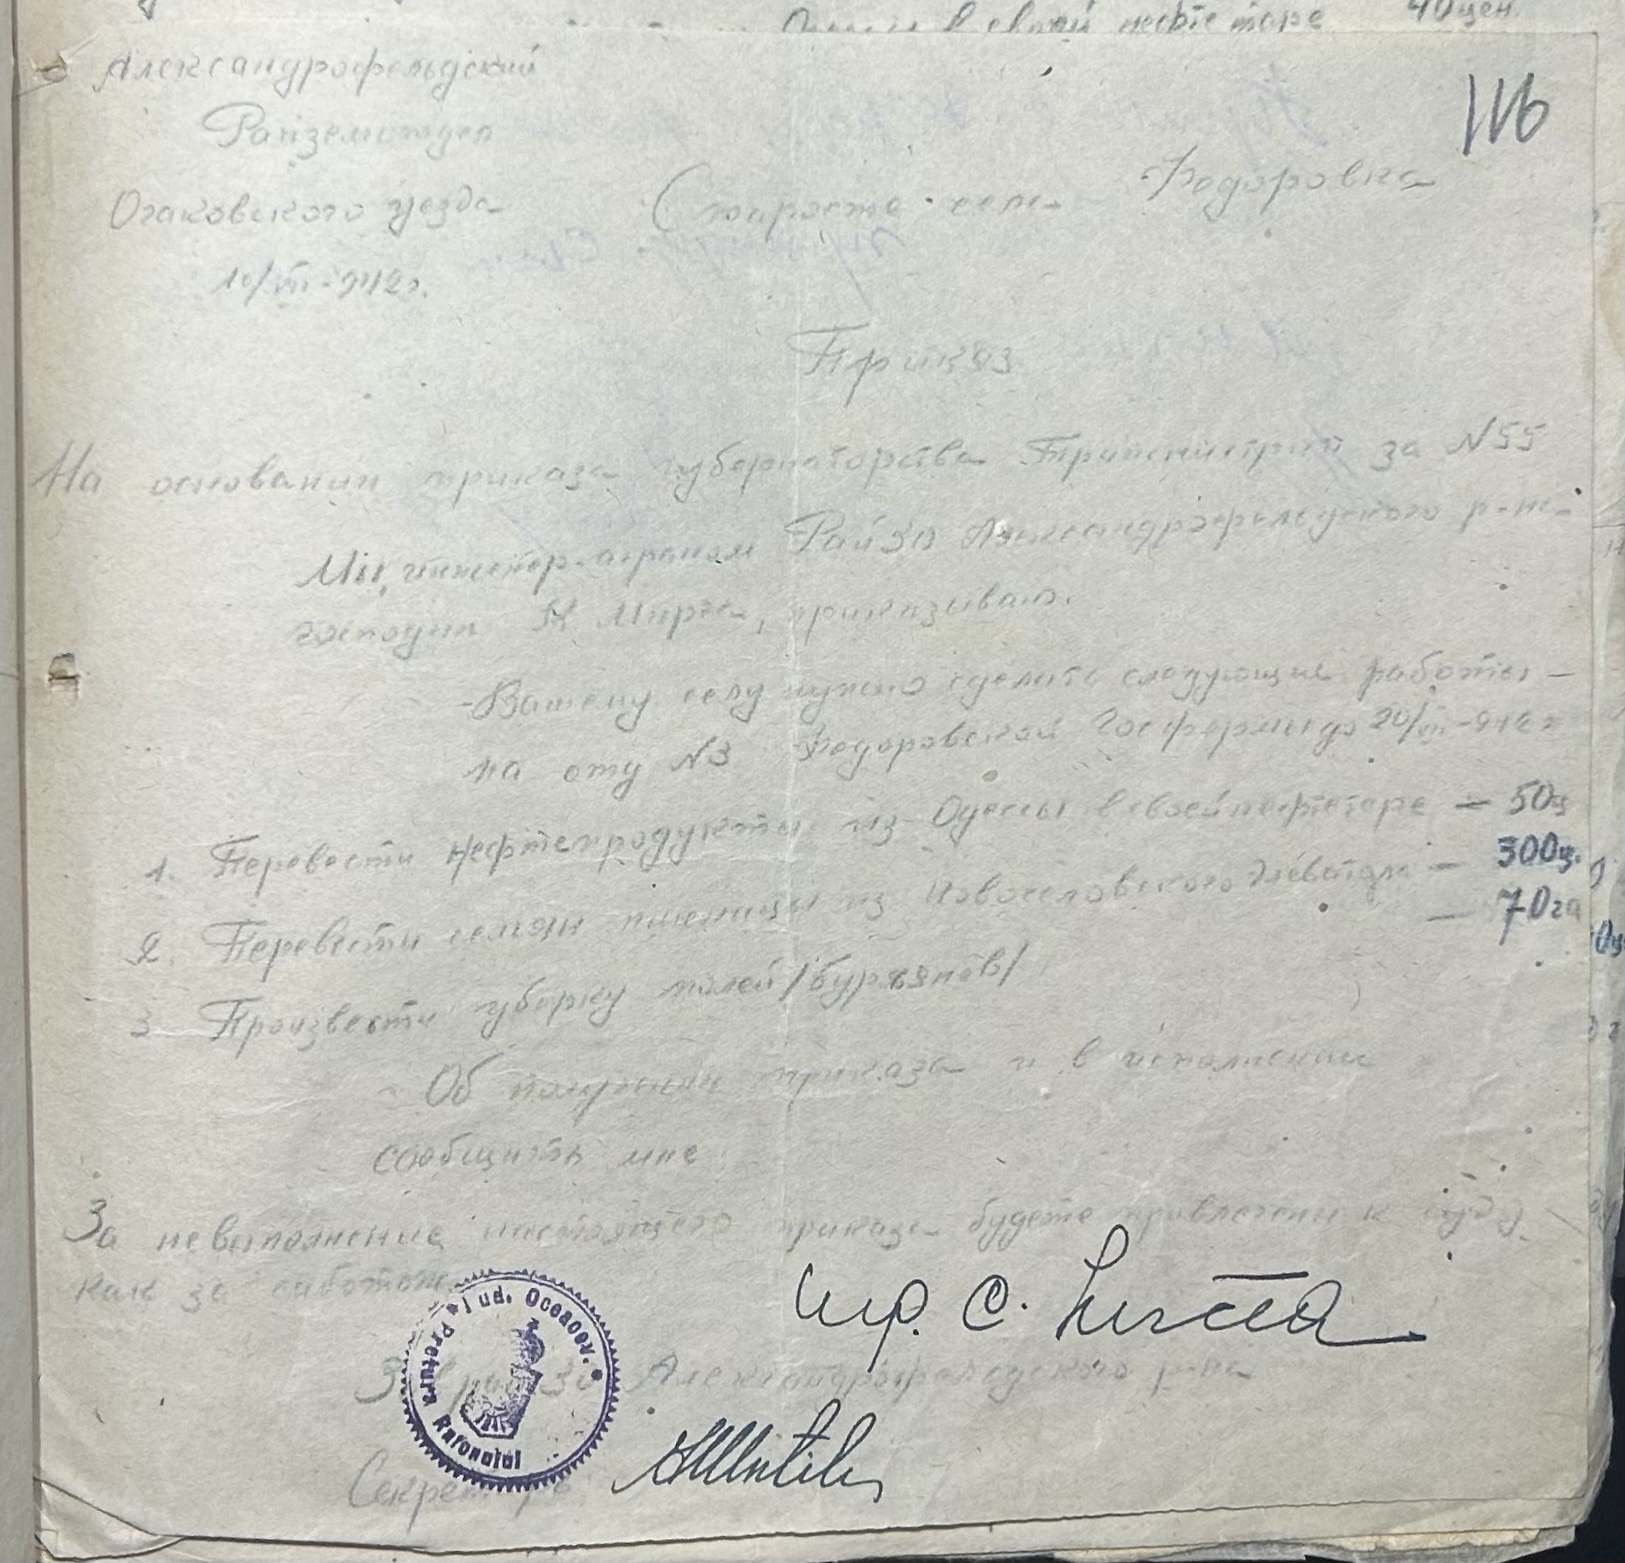 в своей нефтетаре 40 цен.
Александрофельдский
116
Райземотдел
Федоровка
Очаковского уезда
Старосте села
10/VII-942г.
Приказ
На основании приказа губернаторства Транснистрии за N55
Мы, инженер-агроном РайЗО Александрофельдского р-на
господин К Мирча, приказываю.
-Вашему селу нужно сделать следующие работы -
на оту N3 Федоровской Госфермы до 20/VII-942 г
1. Перевести нефтепродукты из Одессы в своей нефтетаре — 50ц
2. Перевести семян пшеницы из Новоселовского элеватора — 300ц.
3 Произвести уборку полей /бурьянов/ — 70га
Об получении приказа и в исполнении
сообщить мне
За невыполнение настоящего приказа будете привлечены к суду
как за саботаж
C. Mircea
Pretura Raionului Jud. Oceacov.
Зав райЗО Александрофельдского р-на
Секретарь